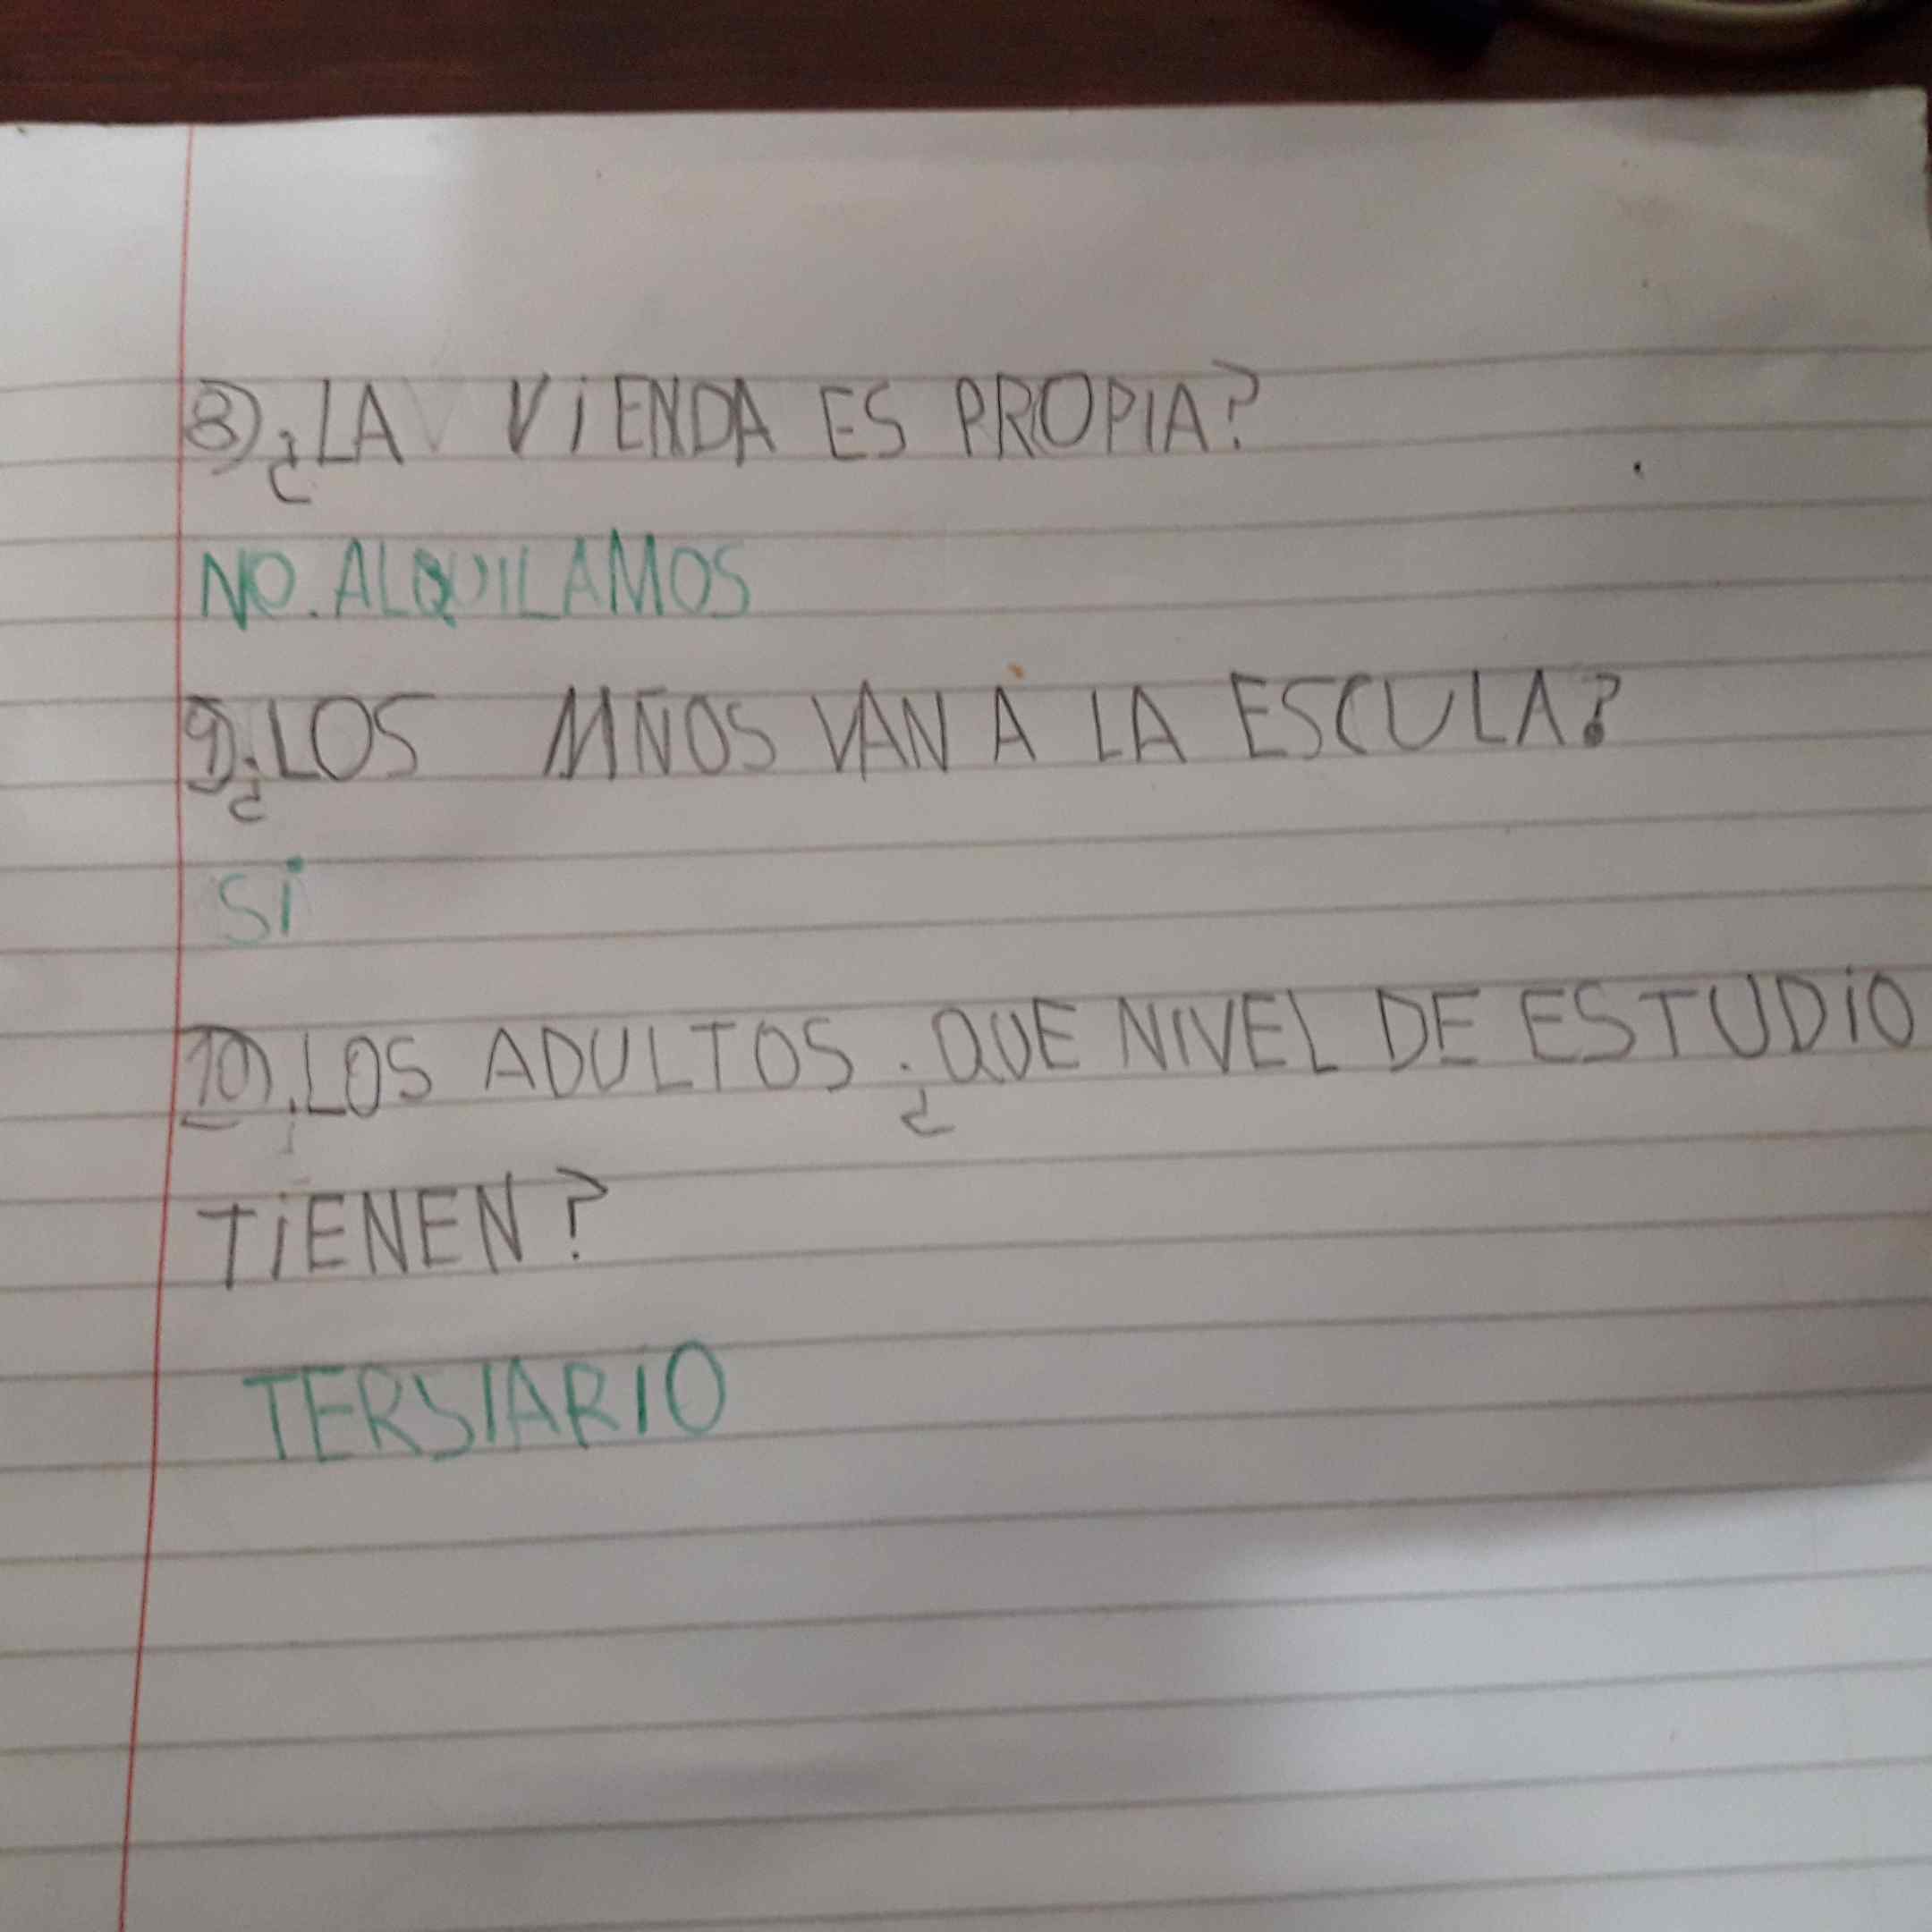 8) ¿LA VIENDA ES PROPIA?
NO. ALQUILAMOS
9) ¿LOS NIÑOS VAN A LA ESCULA?
SI
10) LOS ADULTOS ¿QUE NIVEL DE ESTUDIO
TIENEN?
TERSIARIO